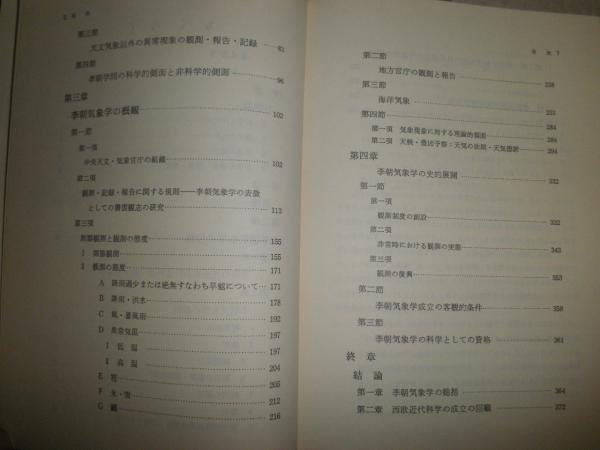 第三節
天文気象以外の異常現象の観測・報告・記録 82
第四節
李朝学問の科学的側面と非科学的側面 96
第三章
李朝気象学の概観 102
第一節
第一項
中央天文・気象官庁の組織 102
第二項
観測・記録・報告に関する規則――李朝気象学の表徴
としての書雲観志の研究 113
第三項
測器観測と観測の態度 155
Ⅰ 測器観測 155
Ⅱ 観測の態度 171
A 降雨過少または絶無すなわち旱魃について 171
B 降雨・洪水 178
C 風・暴風雨 192
D 異常気温 197
Ⅰ 低温 197
Ⅱ 高温 204
E 雹 205
F 氷・雪 212
G 霜 216
目次 7
第二節
地方官庁の観測と報告 238
第三節
海洋気象
第四節 284
第一項 気象現象に対する理論的側面 284
第二項 天候・豊凶予察:天気の法則・天気俚諺 294
第四章
李朝気象学の史的展開 332
第一節
第一項
観測制度の創設 332
第二項
非常時における観測の実態 343
第三項
観測の復興 353
第二節
李朝気象学成立の客観的条件 358
第三節
李朝気象学の科学としての資格 361
終章
結論
第一章 李朝気象学の総括 364
第二章 西欧近代科学の成立の回顧 372